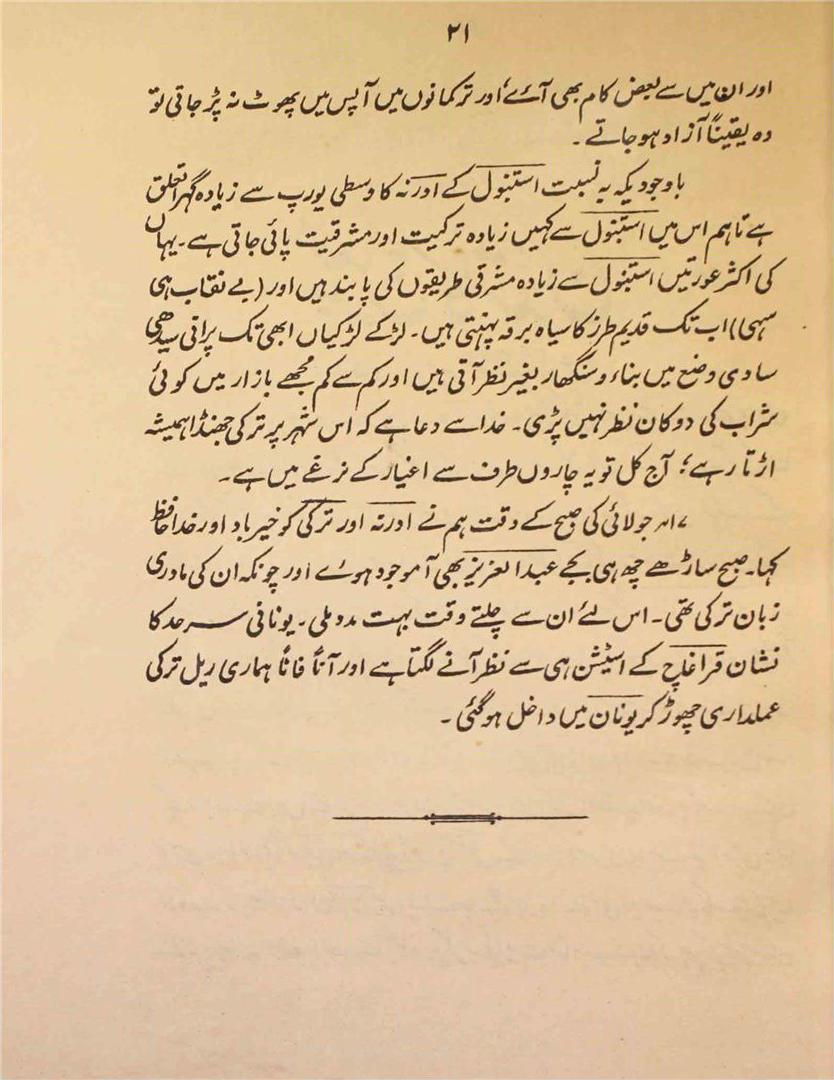 ۲۱
اور ان میں سے بعض کام بھی آئے، اور ترکمانوں میں آپس میں پھوٹ نہ پڑ جاتی تو
وہ یقیناً آزاد ہو جاتے ۔
باوجودیکہ بہ نسبت استنبول کے ادرنہ کا وسطی یورپ سے زیادہ گہرا تعلق
ہے تاہم اس میں استنبول سے کہیں زیادہ ترکیت اور مشرقیت پائی جاتی ہے۔ یہاں
کی اکثر عورتیں استنبول سے زیادہ مشرقی طریقوں کی پابند ہیں اور (بے نقاب ہی
سہی) اب تک قدیم طرز کا سیاہ برقہ پہنتی ہیں۔ لڑکے لڑکیاں ابھی تک پرانی سیدھی
سادی وضع میں بناء و سنگھار بغیر نظر آتی ہیں اور کم سے کم مجھے بازار میں کوئی
شراب کی دوکان نظر نہیں پڑی۔ خدا سے دعا ہے کہ اس شہر پر ترکی جھنڈا ہمیشہ
اڑتا رہے؛ آج کل تو یہ چاروں طرف سے اغیار کے نرغے میں ہے۔
۱۷؍ جولائی کی صبح کے وقت ہم نے ادرنہ اور ترکی کو خیرباد اور خدا حافظ
کہا۔ صبح ساڑھے چھ ہی بجے عبدالعزیز بھی آموجود ہوئے اور چونکہ ان کی مادری
زبان ترکی تھی۔ اس لئے ان سے چلتے وقت بہت مدد ملی۔ یونانی سرحد کا
نشان قراغاچ کے اسٹیشن ہی سے نظر آنے لگتا ہے اور آناً فاناً ہماری ریل ترکی
عملداری چھوڑ کر یونان میں داخل ہوگئی ۔